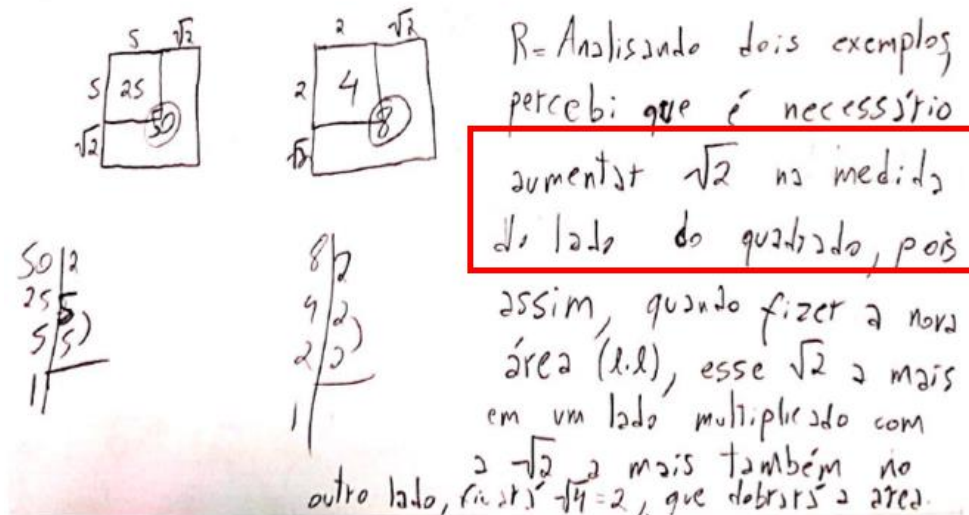 5 √2
5 25
√2 50
2 √2
2 4
√2 8
50 | 2
25 5
5 5)
1
8 | 2
4 2
2 2)
1
R= Analisando dois exemplos
percebi que é necessário
aumentar √2 na medida
do lado do quadrado, pois
assim, quando fizer a nova
área (l.l), esse √2 a mais
em um lado multiplicado com
a √2 a mais também no
outro lado, ficará √4 = 2, que dobrará a área.